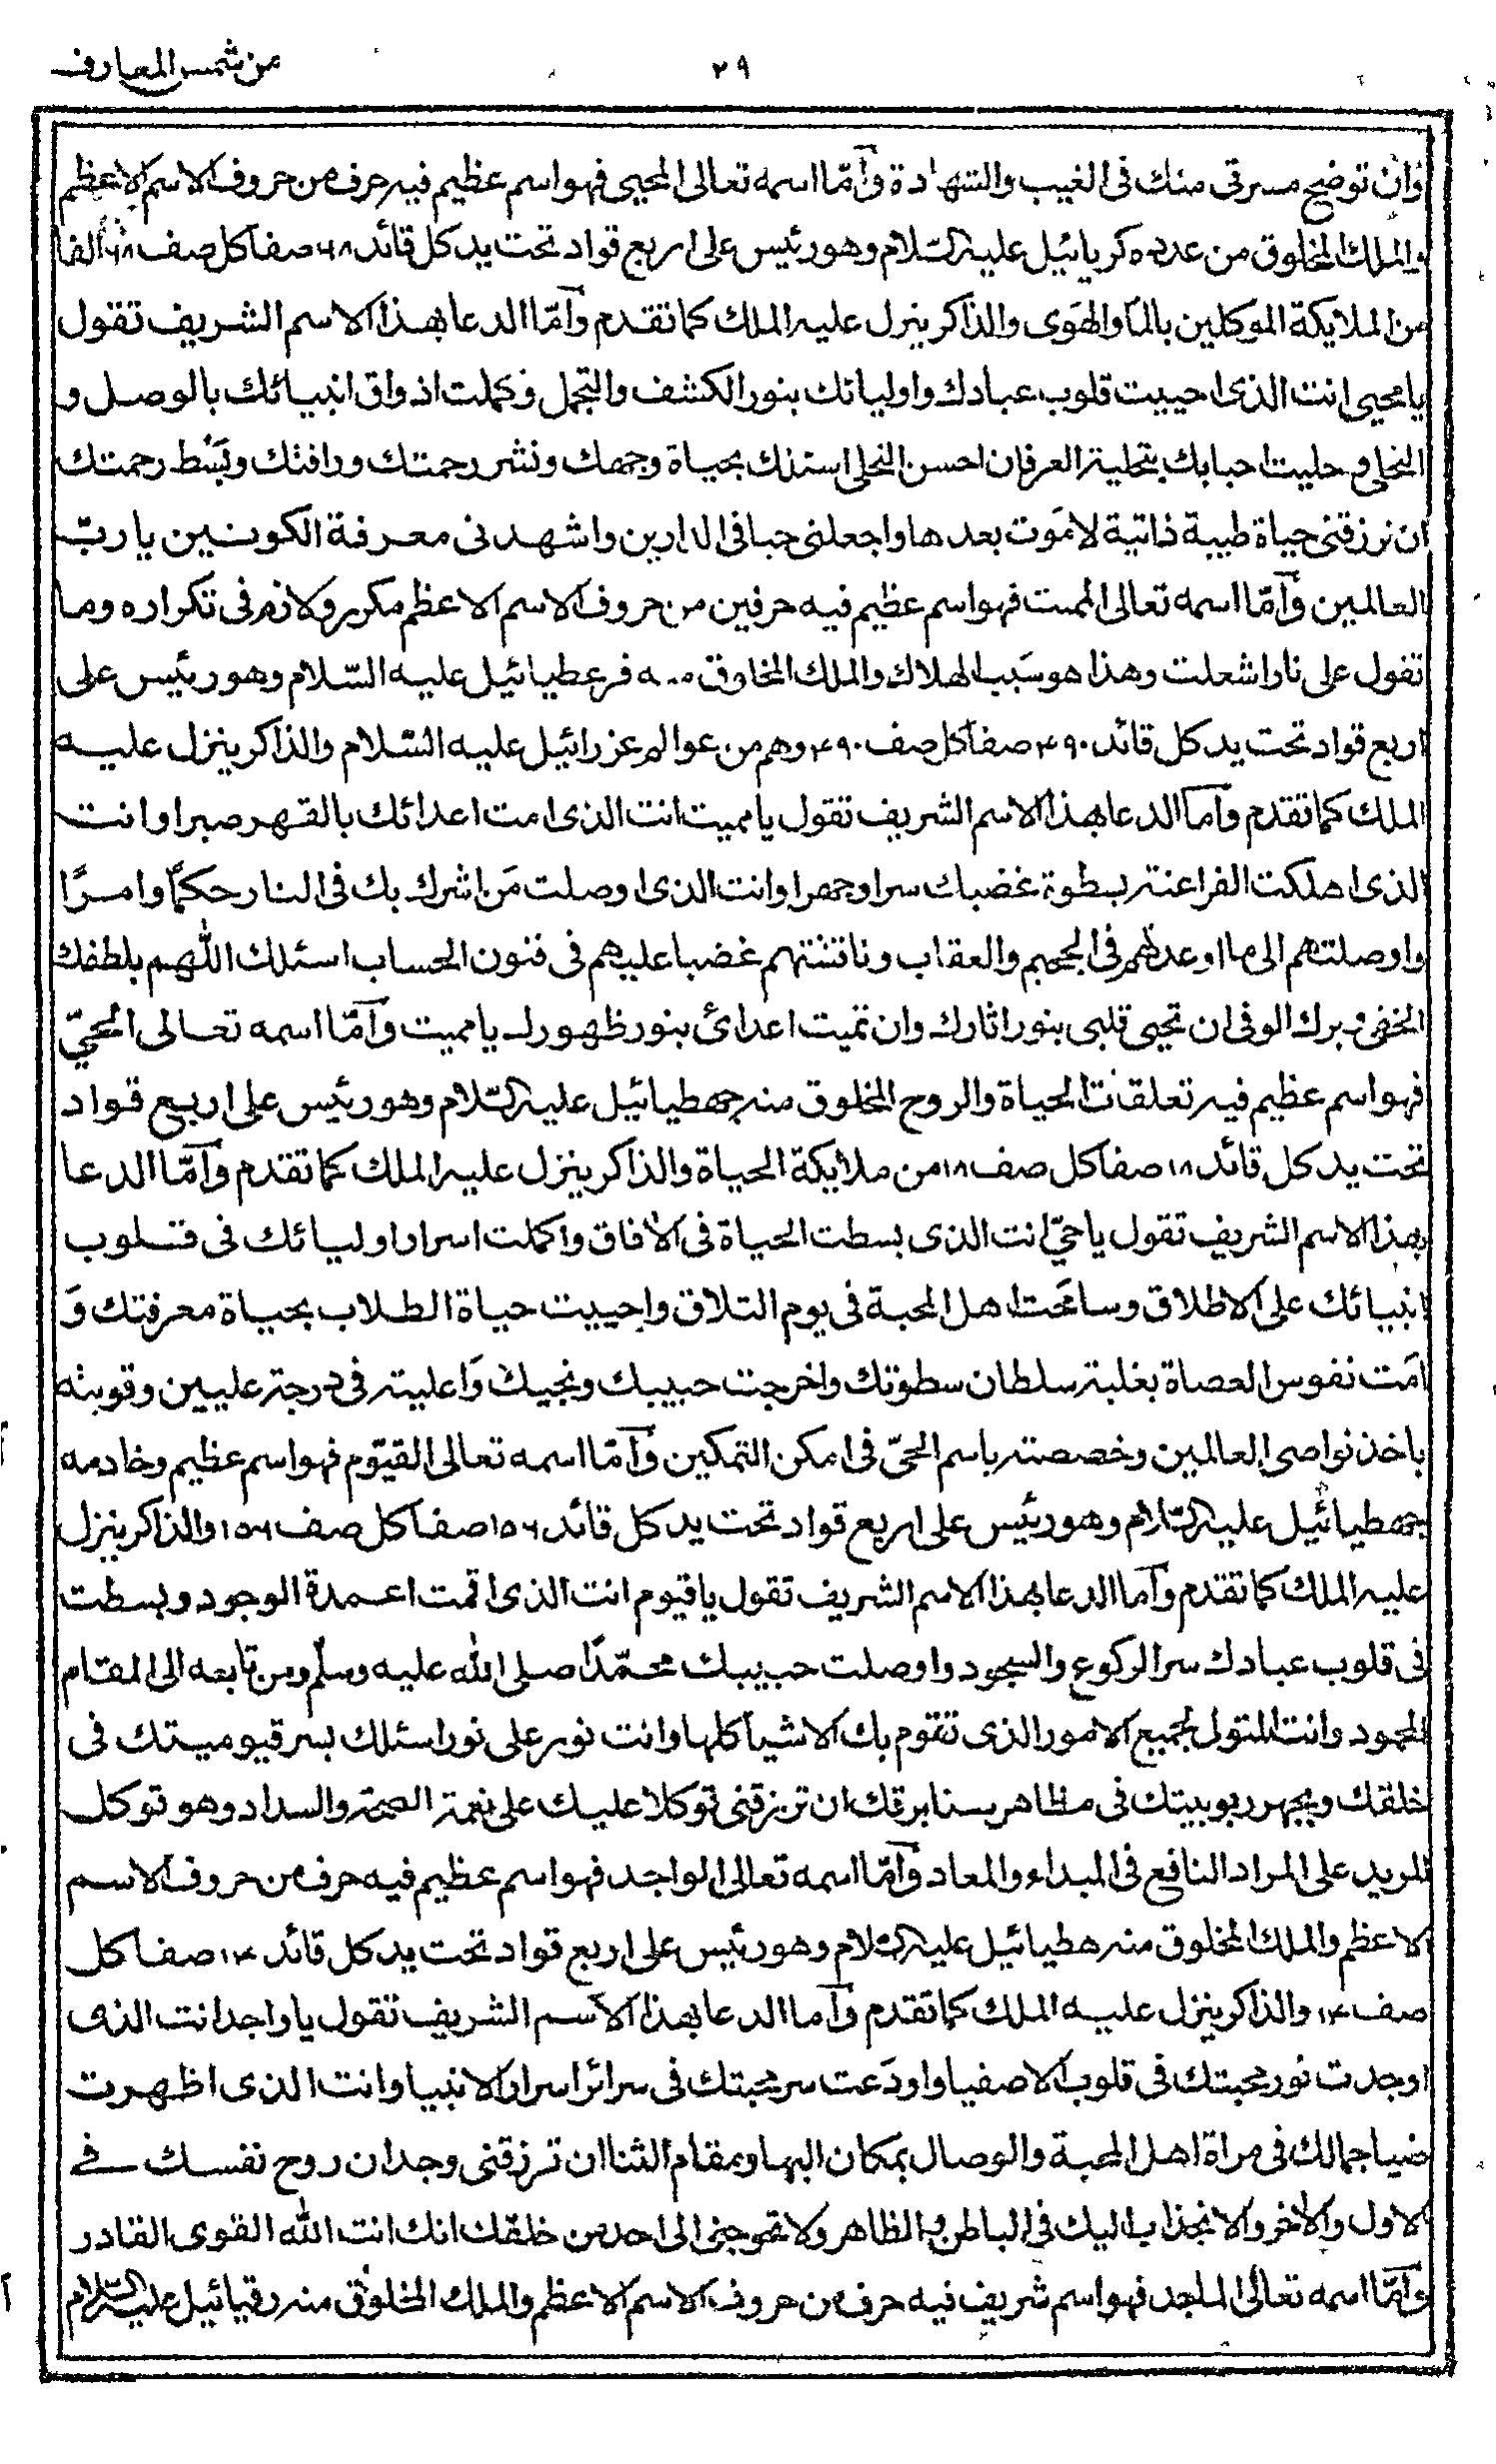 من شمس المعارف
٢٩
وان توضح مسرتى منك فى الغيب والشهادة وأمّا اسمه تعالى المحيى فهو اسم عظيم فيه حرف من حروف الاسم الاعظم
والملك المخلوق من عدده كريائيل عليه السّلام وهو رئيس على اربع قواد تحت يد كل قائد ٦٨ صفا كل صف ٦٨ الفا
من الملايكة الموكلين بالمآ والهَوى والذاكر ينزل عليه الملك كما تقدم وأمّا الدعا بهذا الاسم الشريف تقول
يا محيى انت الذى احييت قلوب عبادك واوليائك بنور الكشف والتجمل وكملت اذواق انبيائك بالوصل و
التحلى وحليت احبابك بتحلية العرفان احسن التحلى اسئلك بحياة وجهك ونشر رحمتك ورافتك وبَسْط رحمتك
ان ترزقنى حياة طيبة ذاتية لا مَوت بعدها واجعلنى حبا فى الدارين واشهدنى معرفة الكونين يا ربّ
العالمين وأمّا اسمه تعالى المميت فهو اسم عظيم فيه حرفين من حروف الاسم الاعظم مكرر ولازم فى تكراره وما
تقول على نار اشعلت وهذا هو سَبب الهلاك والملك المخلوق منه فرعطيائيل عليه السّلام وهو رئيس على
اربع قواد تحت يد كل قائد ٤٩٠ صفا كل صف ٤٩٠ وهم من عوالم عزرائيل عليه السّلام والذاكر ينزل عليه
الملك كما تقدم وأما الدعا بهذا الاسم الشريف تقول يا مميت انت الذى امت اعدائك بالقهر صبرا وانت
الذى اهلكت الفراعنة بسطوة غضبك سرا وجهرا وانت الذى اوصلت مَن اشرك بك فى النار حكمًا وامرًا
واوصلتهم الى ما اوعدتهم فى الجحيم والعقاب وناقشتهم غضبا عليهم فى فنون الحساب اسئلك اللّهم بلطفك
الخفى وبرك الوفى ان تحيى قلبى بنور اثارك وان تميت اعدائ بنور ظهورك يا مميت وأمّا اسمه تعالى الحيّ
فهو اسم عظيم فيه تعلقات الحياة والروح المخلوق منه جهطيائيل عليه السّلام وهو رئيس على اربع قواد
تحت يد كل قائد ١٨ صفا كل صف ١٨ من ملايكة الحياة والذاكر ينزل عليه الملك كما تقدم وأمّا الدعا
بهذا الاسم الشريف تقول يا حيّ انت الذى بسطت الحياة فى الآفاق واكملت اسرار اوليائك فى قلوب
انبيائك على الاطلاق وسامحت اهل المحبة فى يوم التلاق واحييت حياة الطلاب بحياة معرفتك وَ
امَت نفوس العصاة بغلبة سلطان سطوتك واخرجت حبيبك ونجيك وَاعليته فى درجة عليين وقويته
باخذ نواصى العالمين وخصصته باسم الحىّ فى امكن التمكين وأمّا اسمه تعالى القيّوم فهو اسم عظيم وخادمه
جهطيائيل عليه السّلام وهو رئيس على اربع قواد تحت يد كل قائد ١٥٦ صفا كل صف ١٥٦ والذاكر ينزل
عليه الملك كما تقدم وأما الدعا بهذا الاسم الشريف تقول يا قيوم انت الذى اقمت اعمدة الوجود وبسطت
فى قلوب عبادك سر الركوع والسجود واوصلت حبيبك محمّدًا صلى اللّه عليه وسلّم ومن تابعه الى المقام
المحمود وانت المتول لجميع الامور الذى تقوم بك الاشيآ كلها وانت نور على نور اسئلك بسر قيوميتك فى
خلقك وبجهر ربوبيتك فى مظاهر بسنا برقك ان ترزقنى توكلا عليك على نية الصحة والسداد وهو توكل
المريد على المراد النافع فى المبداء والمعاد وأمّا اسمه تعالى الواجد فهو اسم عظيم فيه حرف من حروف الاسم
الاعظم والملك المخلوق منه هطيائيل عليه السّلام وهو رئيس على اربع قواد تحت يد كل قائد ١٤ صفا كل
صف ١٤ والذاكر ينزل عليه الملك كما تقدم وأما الدعا بهذا الاسم الشريف تقول يا واجد انت الذى
اوجدت نور محبتك فى قلوب الاصفيا واودَعت سر محبتك فى سرائر اسرار الانبيا وانت الذى اظهرت
ضيا جمالك فى مراة اهل المحبة والوصال بمكان البها ومقام الثنا ان ترزقنى وجدان روح نفسك فى
الاول والآخر والانجذاب اليك فى الباطن والظاهر ولا تحوجنى الى احد من خلقك انك انت اللّه القوى القادر
وأمّا اسمه تعالى الماجد فهو اسم شريف فيه حرف من حروف الاسم الاعظم والملك المخلوق منه رقيائيل عليه السّلام